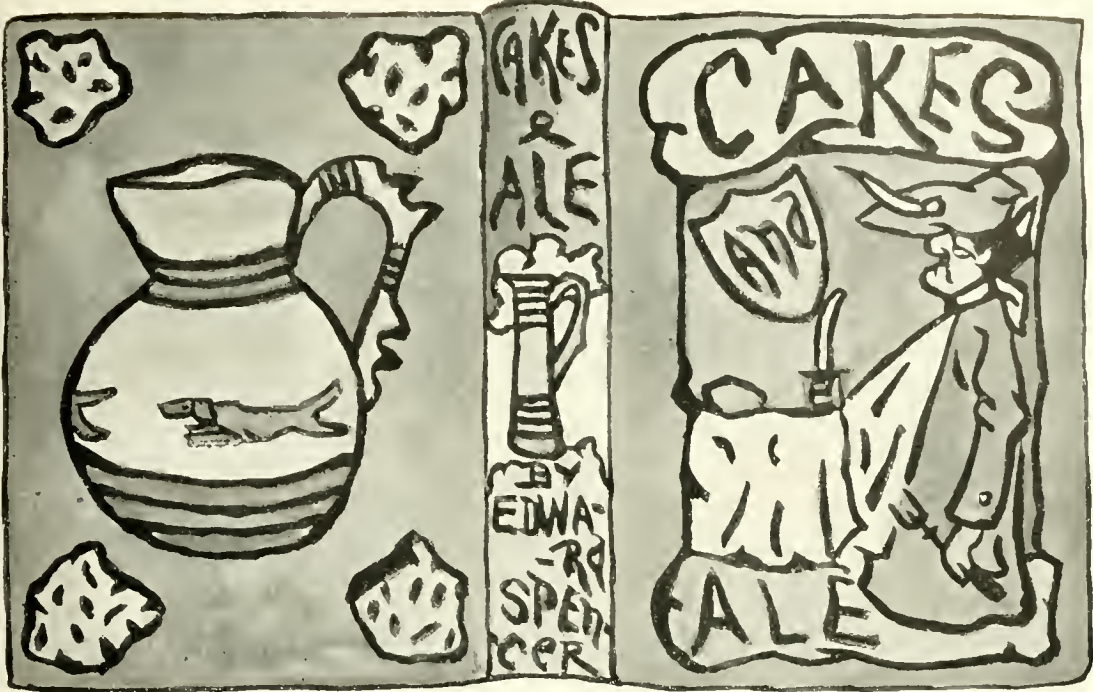 CAKES
&
ALE
BY
EDWA-
-RD
SPEN-
CER
CAKES
And
ALE